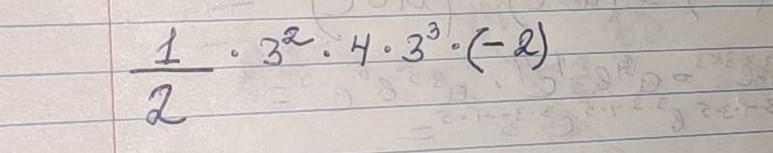 1/2 · 3² · 4 · 3³ · (-2)